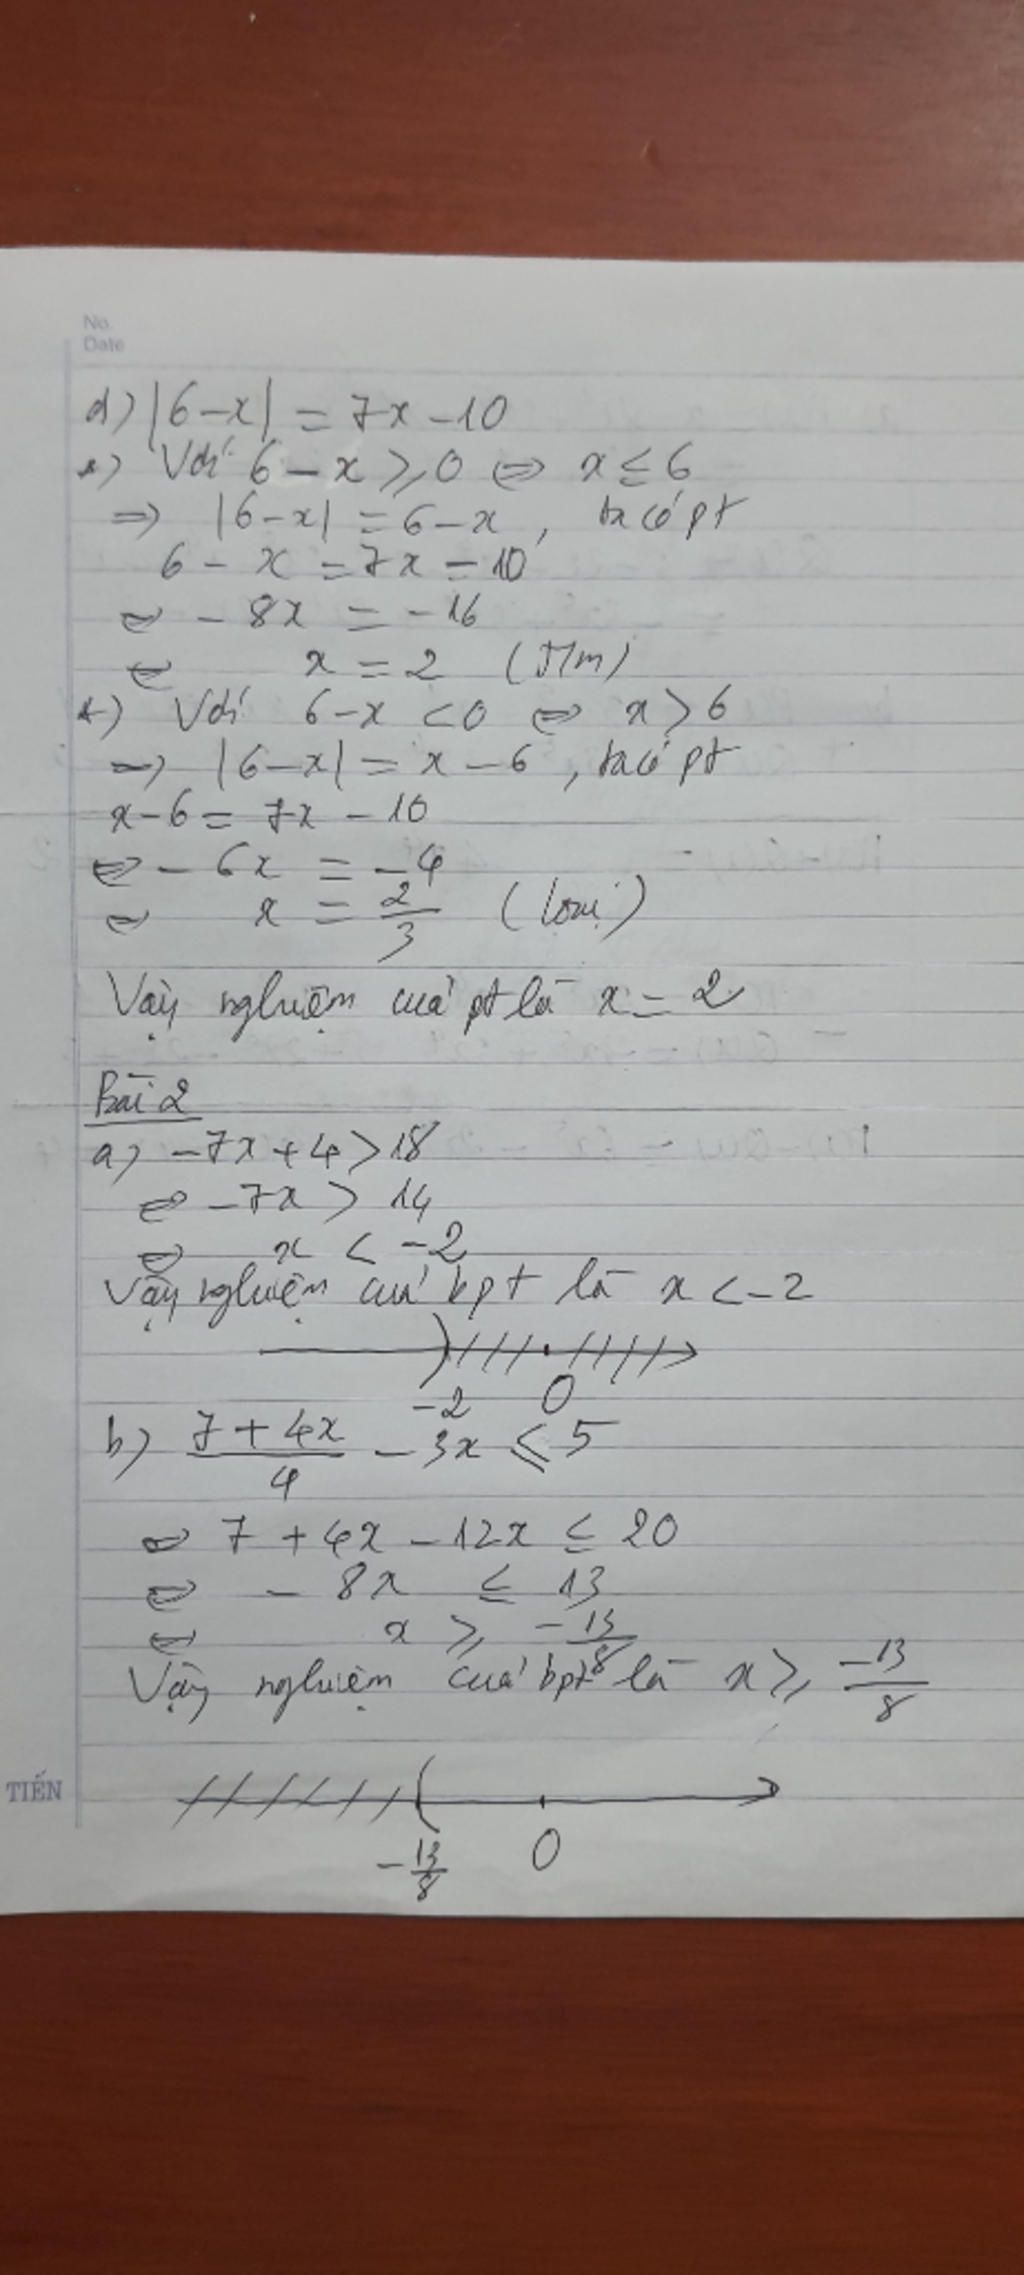 No.
Date
d) |6-x| = 7x-10
+) Với 6-x ≥ 0 ⇔ x ≤ 6
⇒ |6-x| = 6-x, ta có pt
6-x = 7x-10
⇔ -8x = -16
⇔ x = 2 (T/m)
+) Với 6-x < 0 ⇔ x > 6
⇒ |6-x| = x-6, ta có pt
x-6 = 7x-10
⇔ -6x = -4
⇔ x = 2/3 (loại)
Vậy nghiệm của pt là x = 2
Bài 2
a) -7x+4 > 18
⇔ -7x > 14
⇔ x < -2
Vậy nghiệm của bpt là x < -2
-2 0
b) (7+4x)/4 - 3x ≤ 5
⇔ 7+4x-12x ≤ 20
⇔ -8x ≤ 13
⇔ x ≥ -13/8
Vậy nghiệm của bpt là x ≥ -13/8
TIẾN
-13/8 0